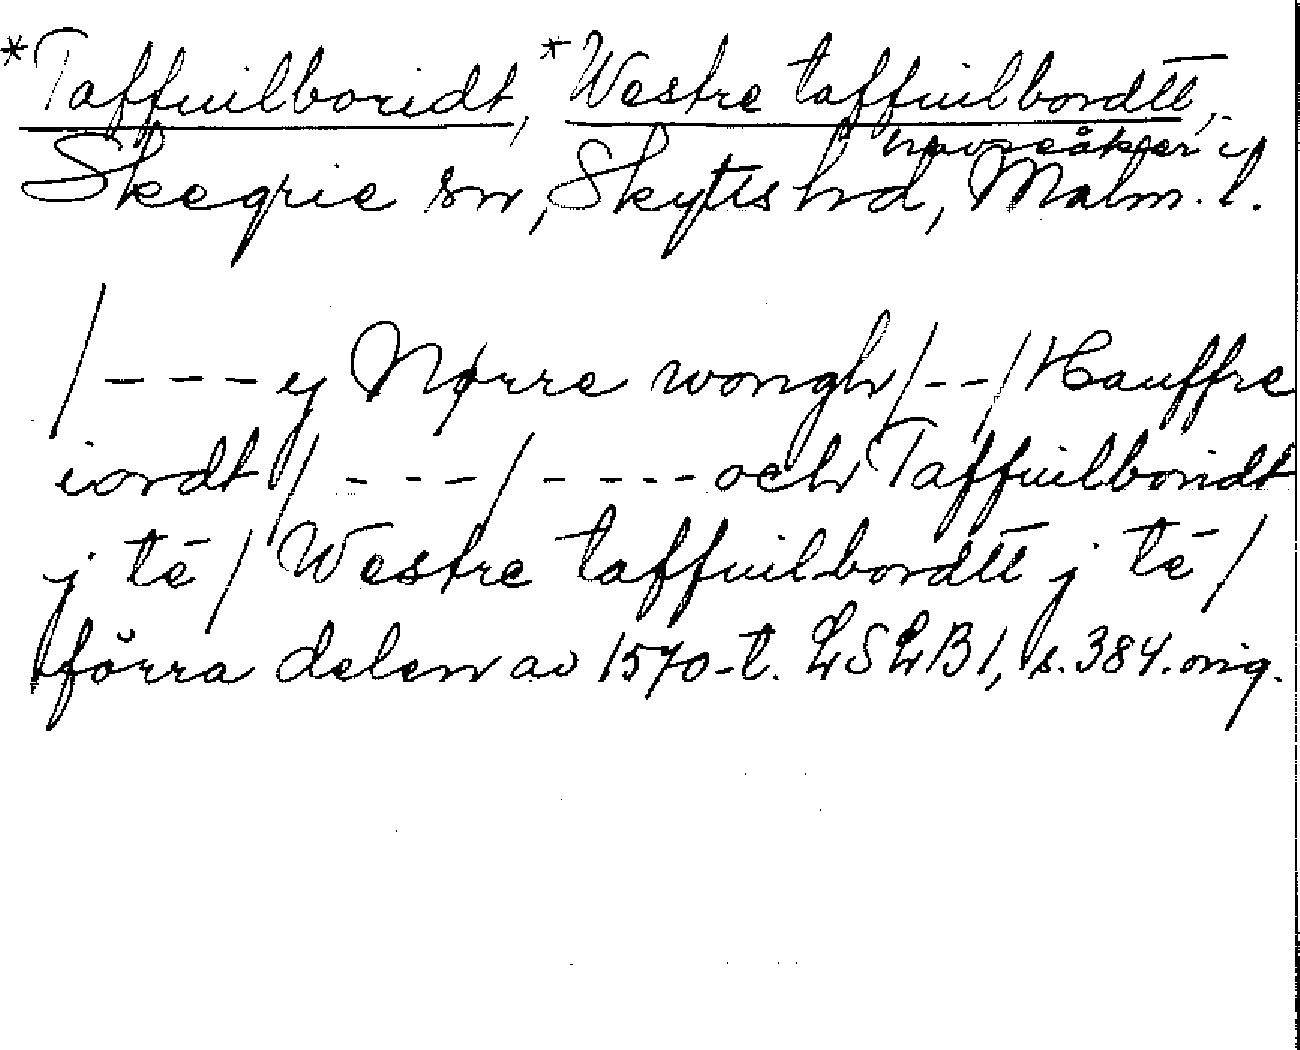 *Taffuilboridt, *Westre taffuilbordtt,
Skegrie sn, Skytts hd, Malm. l.
/---ij Nørre wongh/--/Hauffre
iordt/---/----och Taffuilboridt
j tē/Westre taffuilbordtt j tē/
förra delen av 1570-t. LSLB1, s. 384. orig.